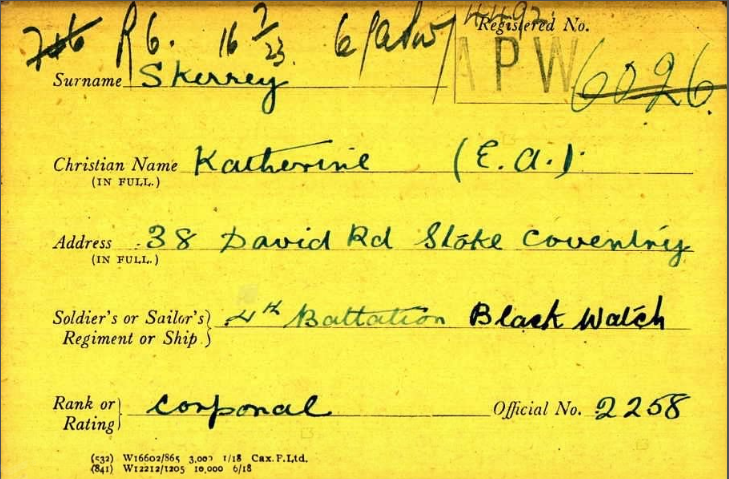 R6. 16/7/23 6/APW 4492
Registered No.
APW 6026
Surname Skerrey
Christian Name Katherine (E.A.)
(IN FULL.)
Address 38 David Rd Stoke Coventry
(IN FULL.)
Soldier's or Sailor's 4th Battation Black Watch
Regiment or Ship
Rank or Corporal Official No. 2258
Rating
(532) W16602/865 3,000 1/18 Cax. P. Ltd.
(841) W12212/1205 10,000 6/18